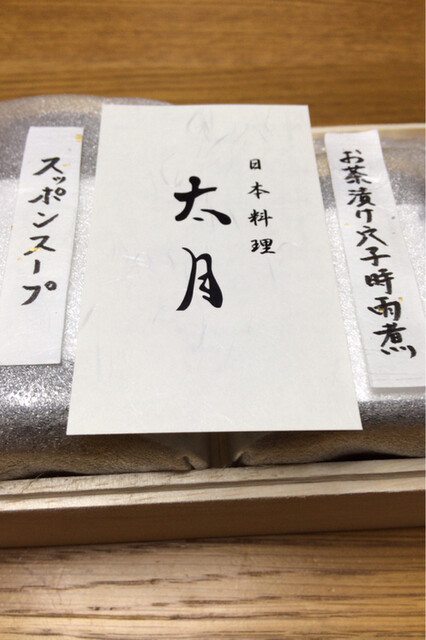 お茶漬け穴子時雨煮
日本料理
太月
スッポンスープ